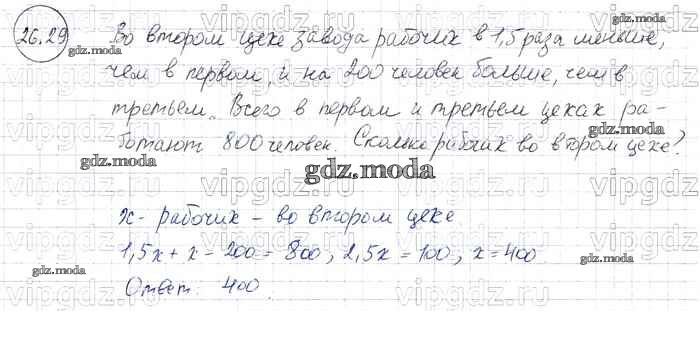 26.29 Во втором цехе завода рабочих в 1,5 раза меньше,
чем в первом, и на 200 человек больше, чем в
третьем. Всего в первом и третьем цехах ра-
ботают 800 человек. Сколько рабочих во втором цехе?
x - рабочих - во втором цехе
1,5x + x - 200 = 800, 2,5x = 100, x = 400
Ответ: 400.
gdz.moda
vipgdz.ru